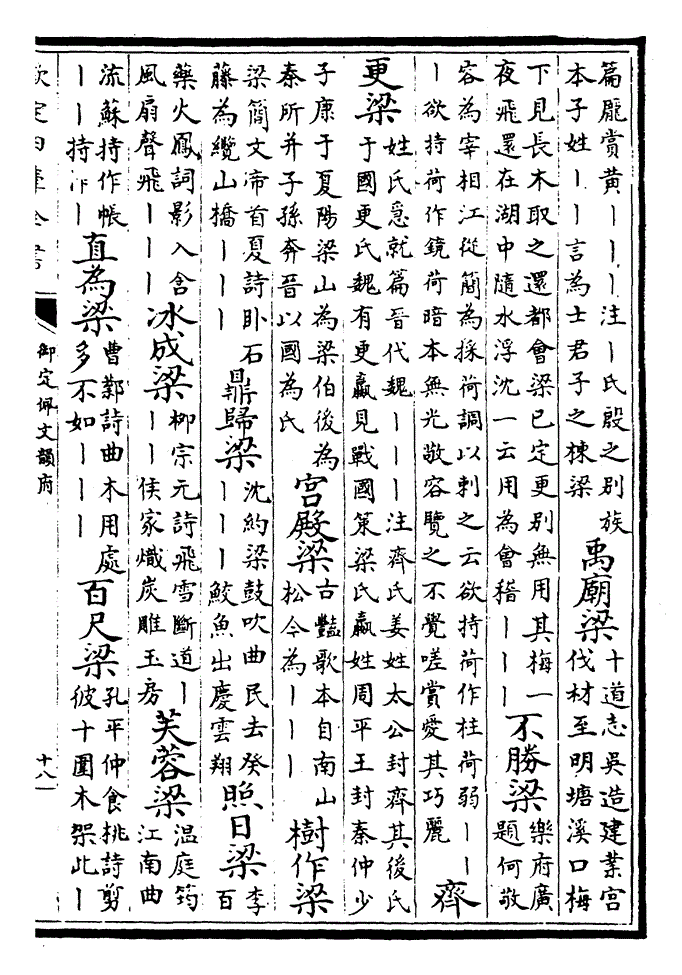 篇龎賞黄｜｜｜注｜氏殷之别族
本子姓｜｜言為士君子之棟梁
禹廟梁
十道志吳造建業宫
伐材至明塘溪口梅
下見長木取之還都會梁已定更别無用其梅一
夜飛還在湖中隨水浮沈一云用為會稽｜｜｜
不勝梁
樂府廣
題何敬
容為宰相江從簡為採荷調以刺之云欲持荷作柱荷弱｜｜
｜欲持荷作鏡荷暗本無光敬容覽之不覺嗟賞愛其巧麗
齊
更梁
姓氏急就篇晉代魏｜｜｜注齊氏姜姓太公封齊其後氏
于國更氏魏有更羸見戰國策梁氏嬴姓周平王封秦仲少
子康于夏陽梁山為梁伯後為
秦所并子孫奔晉以國為氏
宫殿梁
古豔歌本自南山
松今為｜｜｜
樹作梁
梁簡文帝首夏詩卧石
藤為纜山橋｜｜｜
鼎歸梁
沈約梁鼓吹曲民去癸
｜｜｜鮫魚出慶雲翔
照日梁
李
百
藥火鳳詞影入含
風扇聲飛｜｜｜
冰成梁
柳宗元詩飛雪斷道｜
｜｜侯家熾炭雕玉房
芙蓉梁
温庭筠
江南曲
流蘇持作帳
｜｜持作｜
直為梁
曹鄴詩曲木用處
多不如｜｜｜
百尺梁
孔平仲食桃詩剪
彼十圍木架此｜
欽定四庫全書
御定佩文韻府
十八